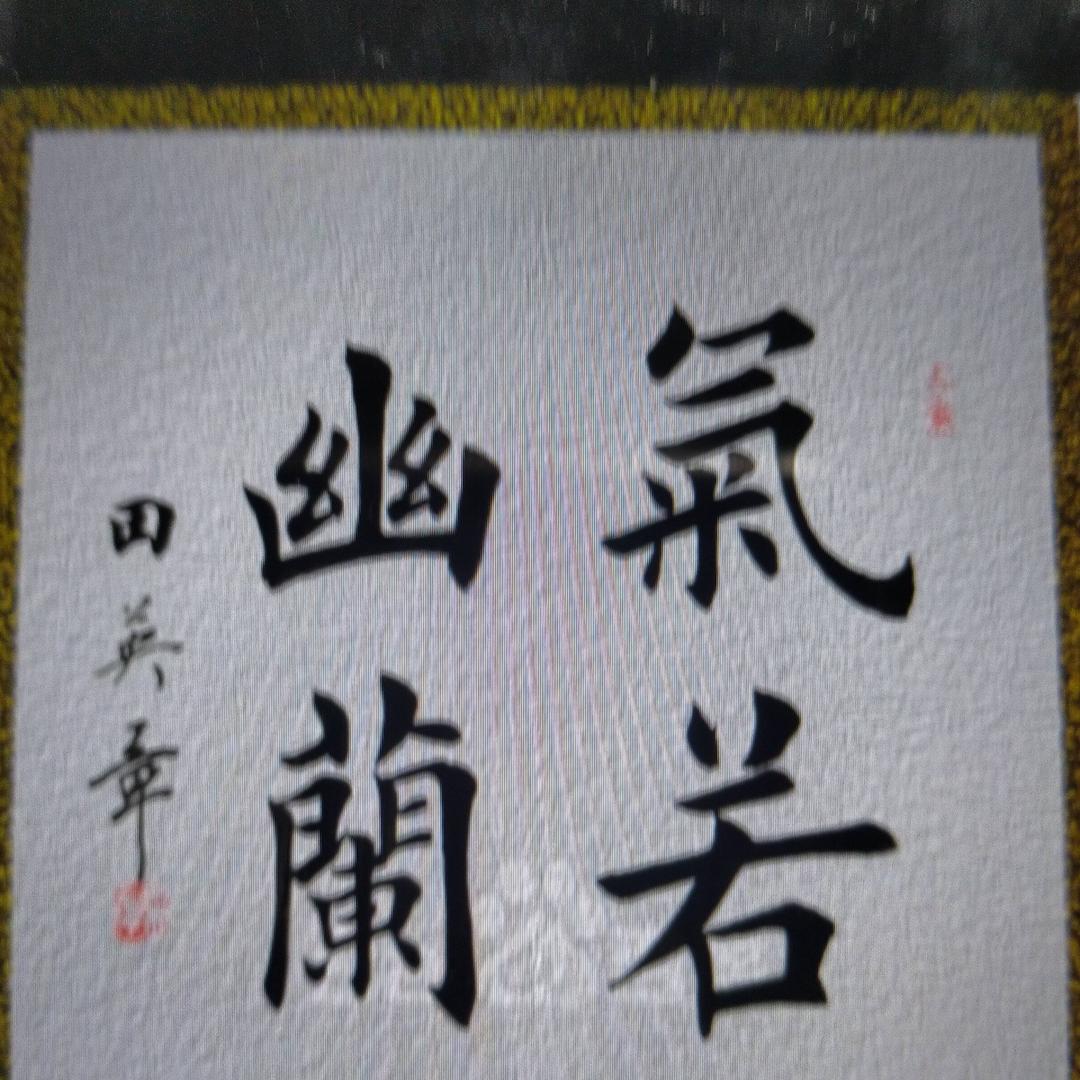 氣若
幽蘭
田英章